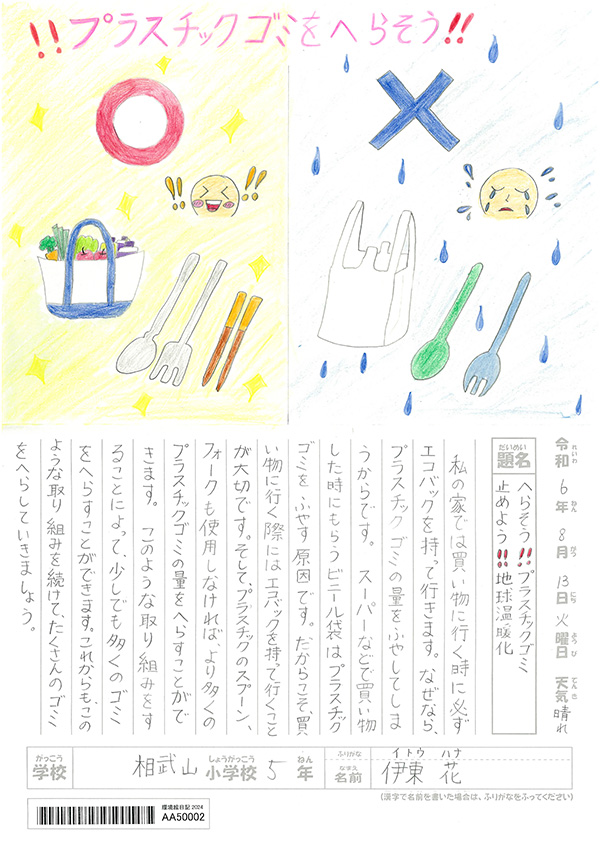 !!プラスチックゴミをへらそう!!
令和6年8月13日火曜日 天気晴れ
れいわ ねん がつ にち ようび てんき
だいめい
題名
へらそう!!プラスチックゴミ
止めよう!!地球温暖化
私の家では買い物に行く時に必ず
エコバックを持って行きます。なぜなら、
プラスチックゴミの量をふやしてしま
うからです。スーパーなどで買い物
した時にもらうビニール袋はプラスチック
ゴミをふやす原因です。だからこそ、買
い物に行く際にはエコバックを持って行くこと
が大切です。そして、プラスチックのスプーン、
フォークも使用しなければ、より多くの
プラスチックゴミの量をへらすことがで
きます。このような取り組みをす
ることによって、少しでも多くのゴミ
をへらすことができます。これからも、この
ような取り組みを続けて、たくさんのゴミ
をへらしていきましょう。
がっこう しょうがっこう ねん
学校 相武山小学校 5年
ふりがな イトウ ハナ
なまえ
名前 伊東 花
(漢字で名前を書いた場合は、ふりがなをふってください)
環境絵日記 2024
AA50002